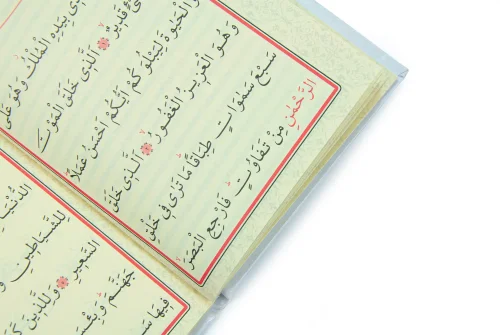 بِيَدِهِ الْمُلْكُ وَهُوَ عَلٰى
قَدِيرٌ ۞ اَلَّذِى خَلَقَ الْمَوْتَ
وَالْحَيٰوةَ لِيَبْلُوَكُمْ اَيُّكُمْ اَحْسَنُ عَمَلًا
وَهُوَ الْعَزِيزُ الْغَفُورُ ۞ اَلَّذِى خَلَقَ
سَبْعَ سَمٰوَاتٍ طِبَاقًا مَا تَرٰى فِى خَلْقِ
الرَّحْمٰنِ مِنْ تَفَاوُتٍ فَارْجِعِ الْبَصَرَ
الدُّنْيَا
لِلشَّيَاطِينِ
السَّعِيرِ ۞ وَلِلَّذِينَ
جَهَنَّمَ
فِيهَا